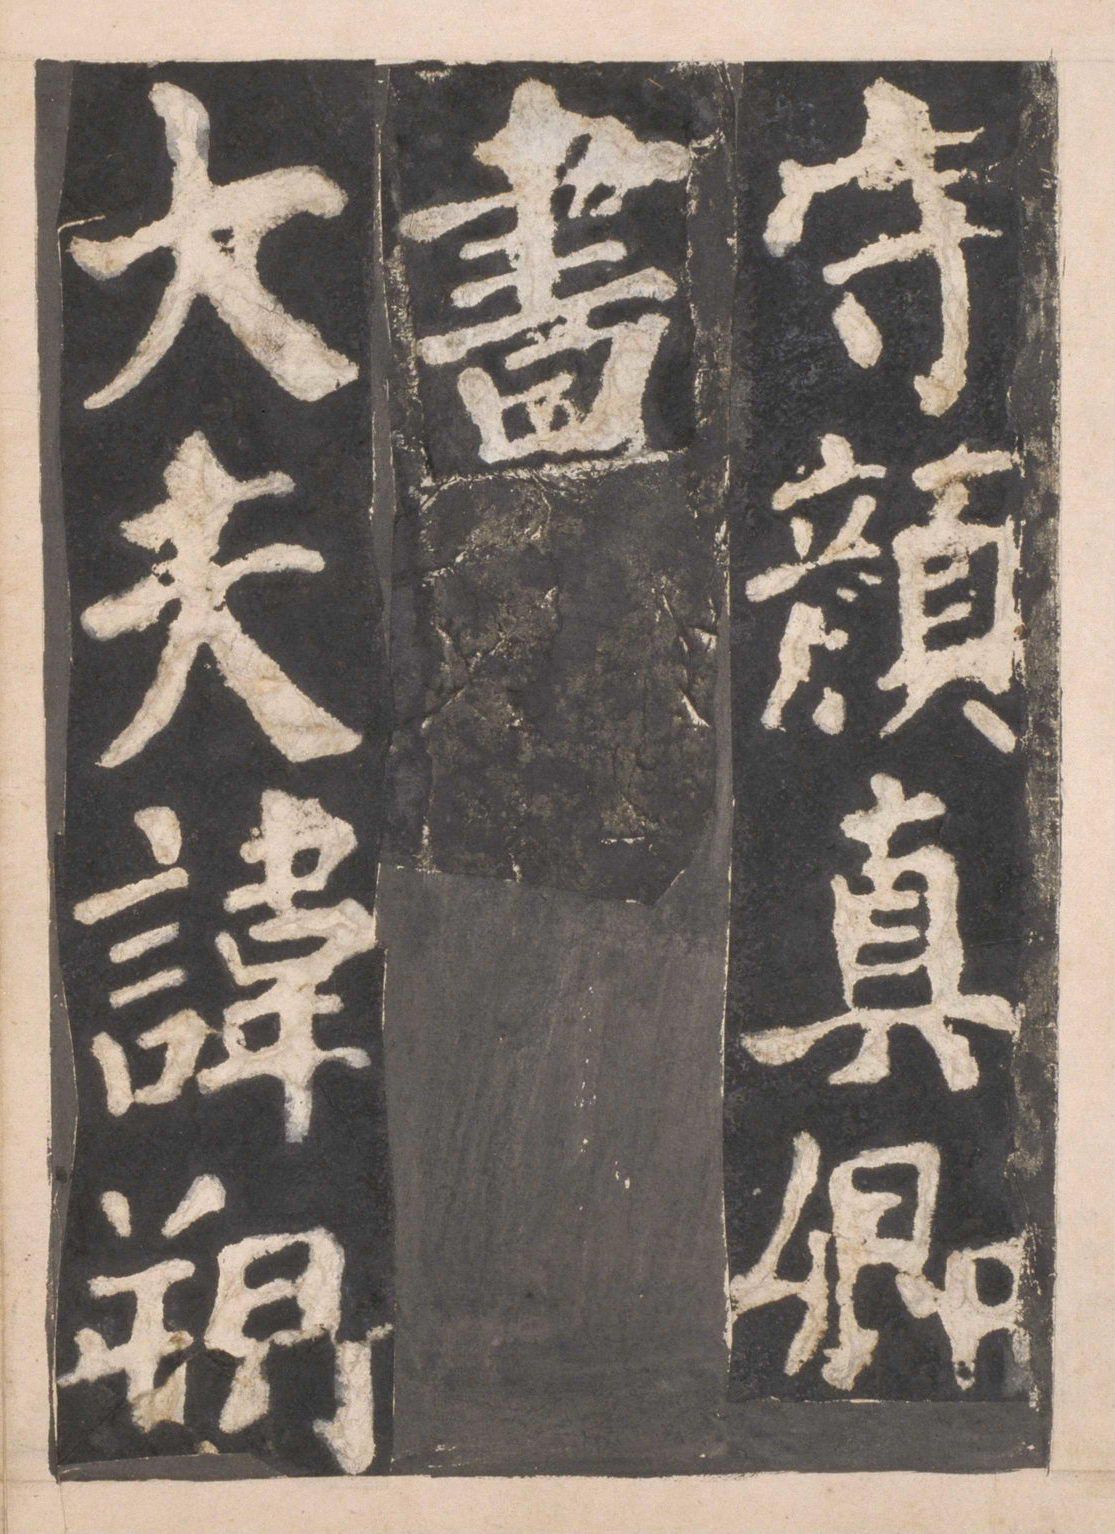 守顏真卿
書
大夫諱朔